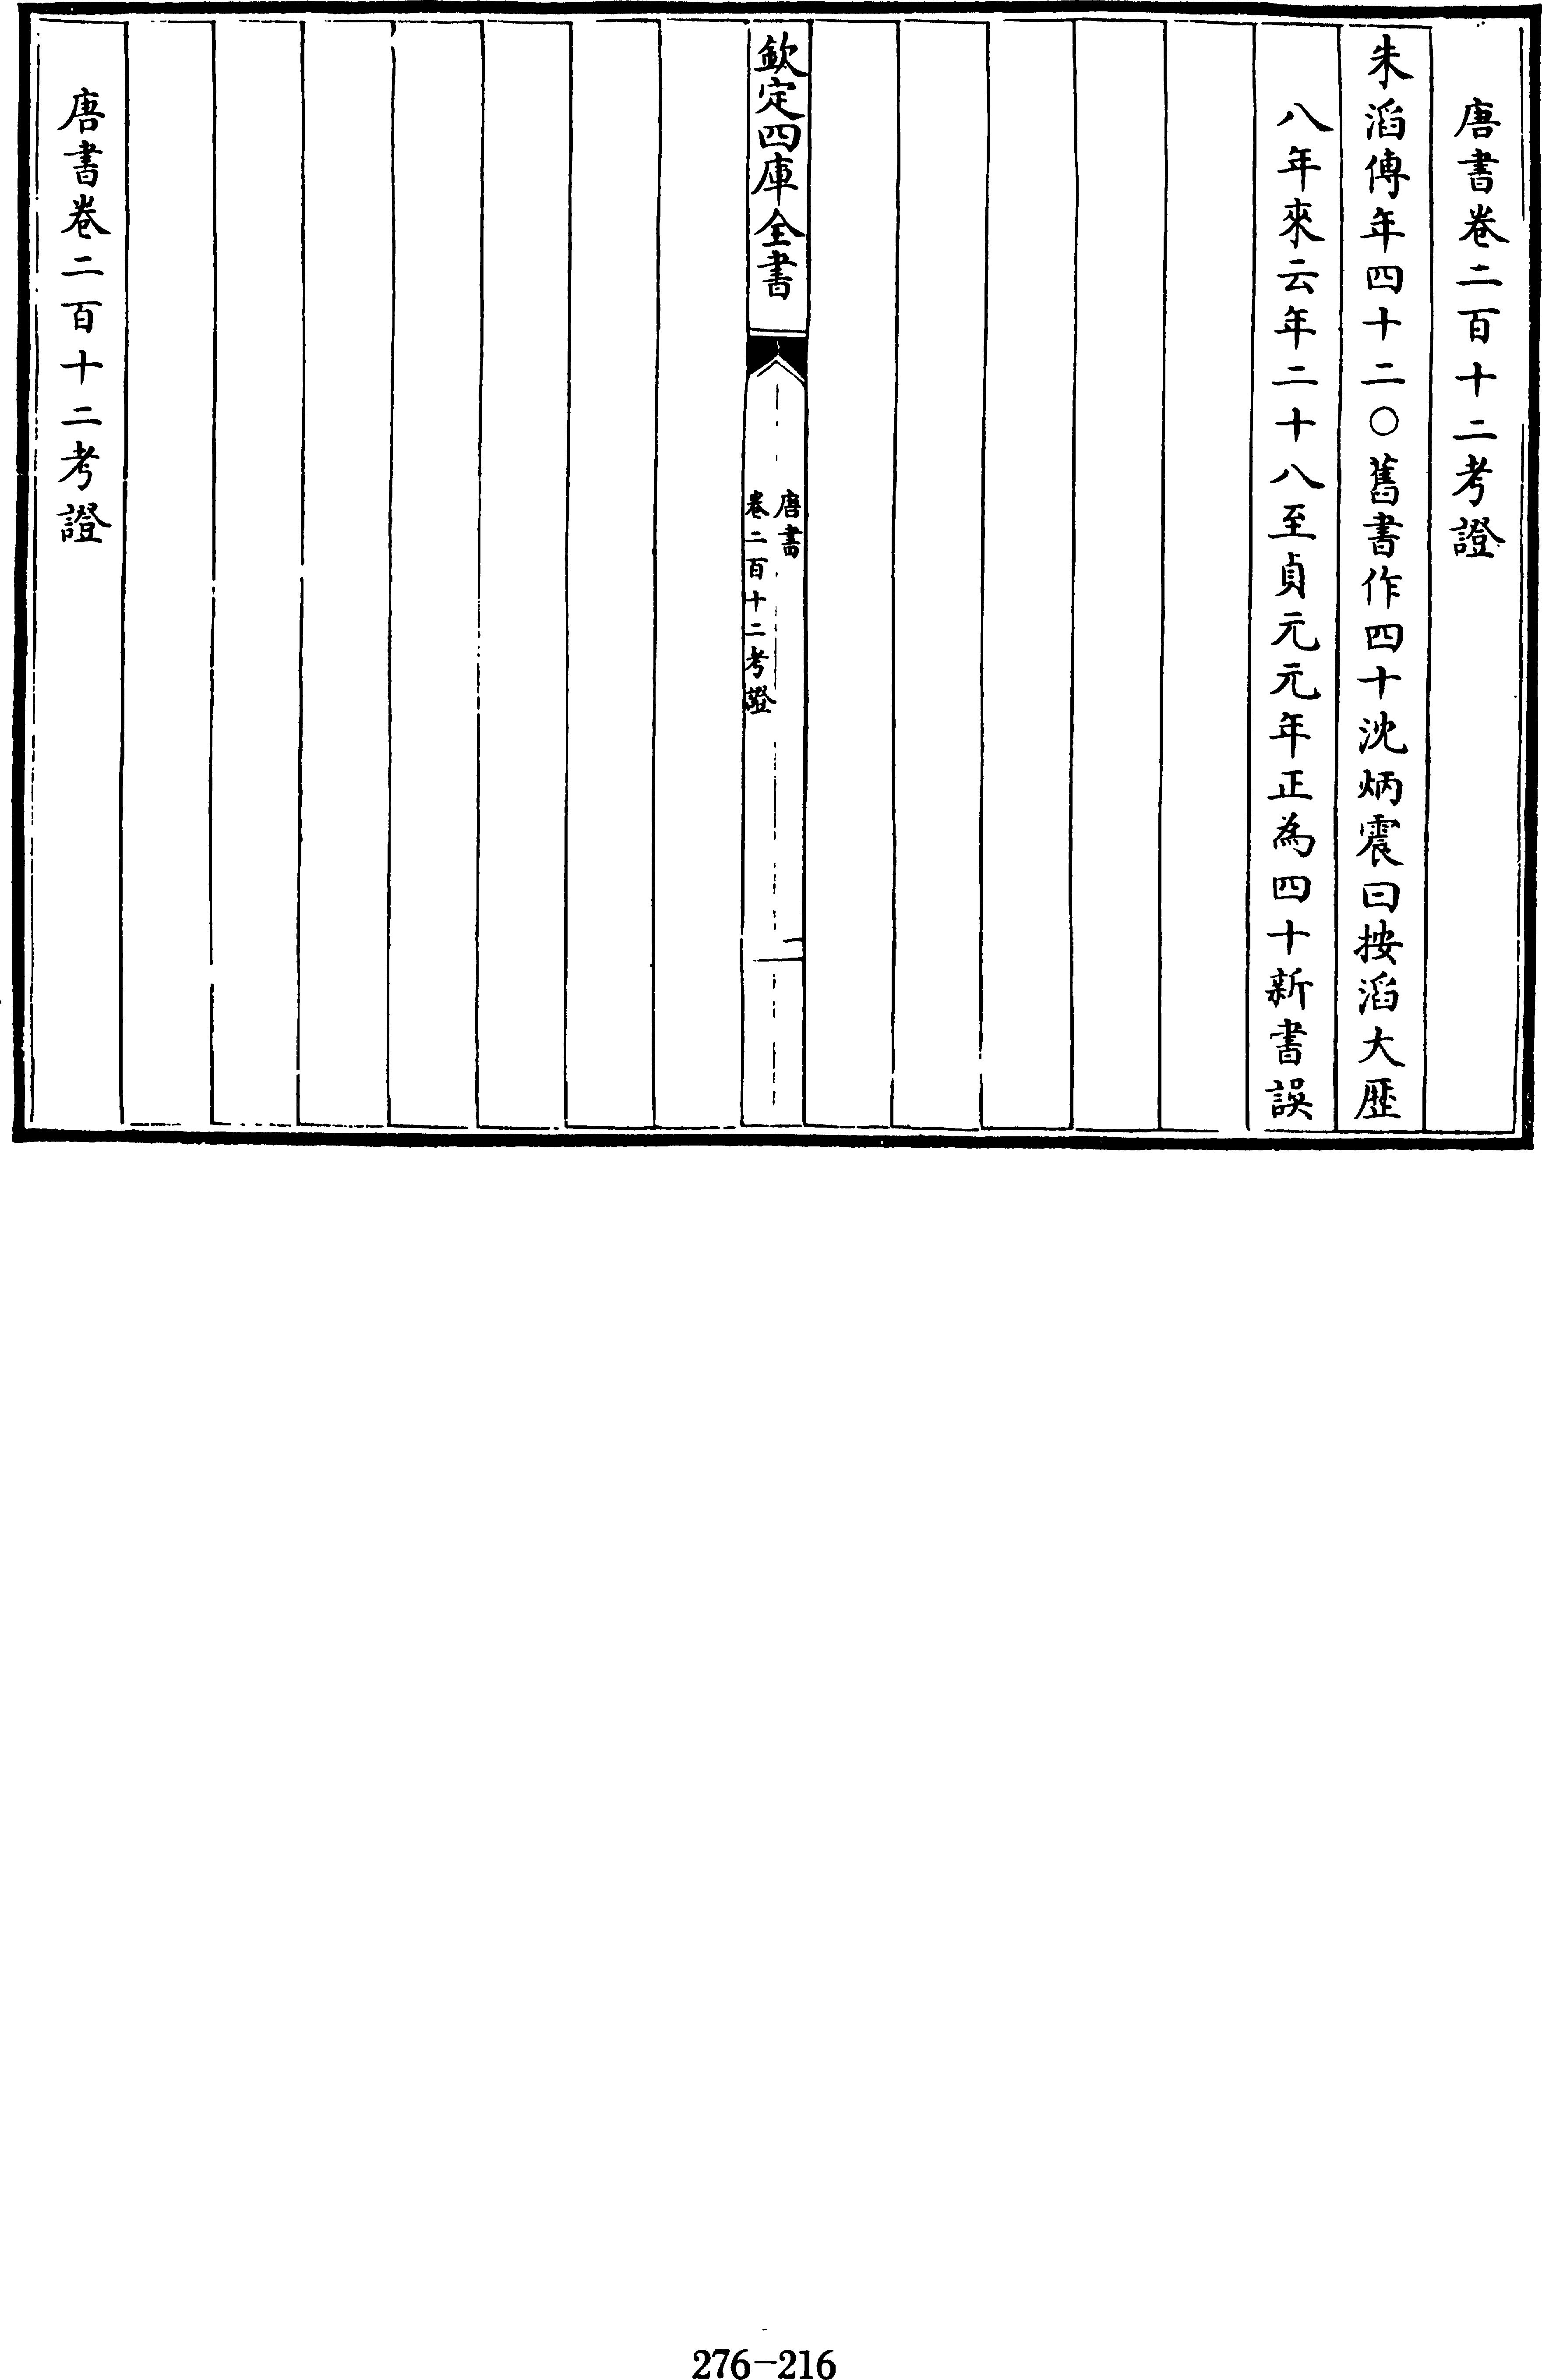 唐書卷二百十二考證
朱滔傳年四十二〇舊書作四十沈炳震曰按滔大歷
八年來云年二十八至貞元元年正為四十新書誤
欽定四庫全書
唐書
卷二百十二考證
一
唐書卷二百十二考證
276-216